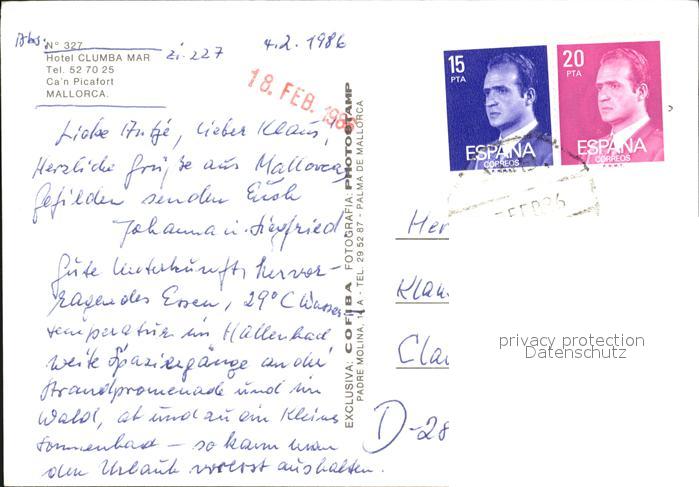 Abs.
N° 327
Hotel CLUMBA MAR
Tel. 52 70 25
Ca'n Picafort
MALLORCA.
Zi. 227
4.2. 1986
18. FEB. 1986
Liebe Antje, lieber Klaus,
Herzliche Grüße aus Mallorcas
Gefilden senden Euch
Johanna u. Siegfried
Gute Unterkunft, hervor-
ragendes Essen, 29° C Wasser
temperatur im Hallenbad
weite Spaziergänge an der
Strandpromenade und im
Wald, ab und zu ein kleines
Sonnenbad – so kann man
den Urlaub vollst aushalten.
EXCLUSIVA: COFIBA FOTOGRAFIA: PHOTOSTAMP
PADRE MOLINA, A - TEL. 29 52 87 - PALMA DE MALLORCA
15
PTA
ESPAÑA
CORREOS
F.N.M.T.
20
PTA
ESPAÑA
CORREOS
F.N.M.T.
FEB 86
Her
Klau
Cla
D-28
privacy protection
Datenschutz